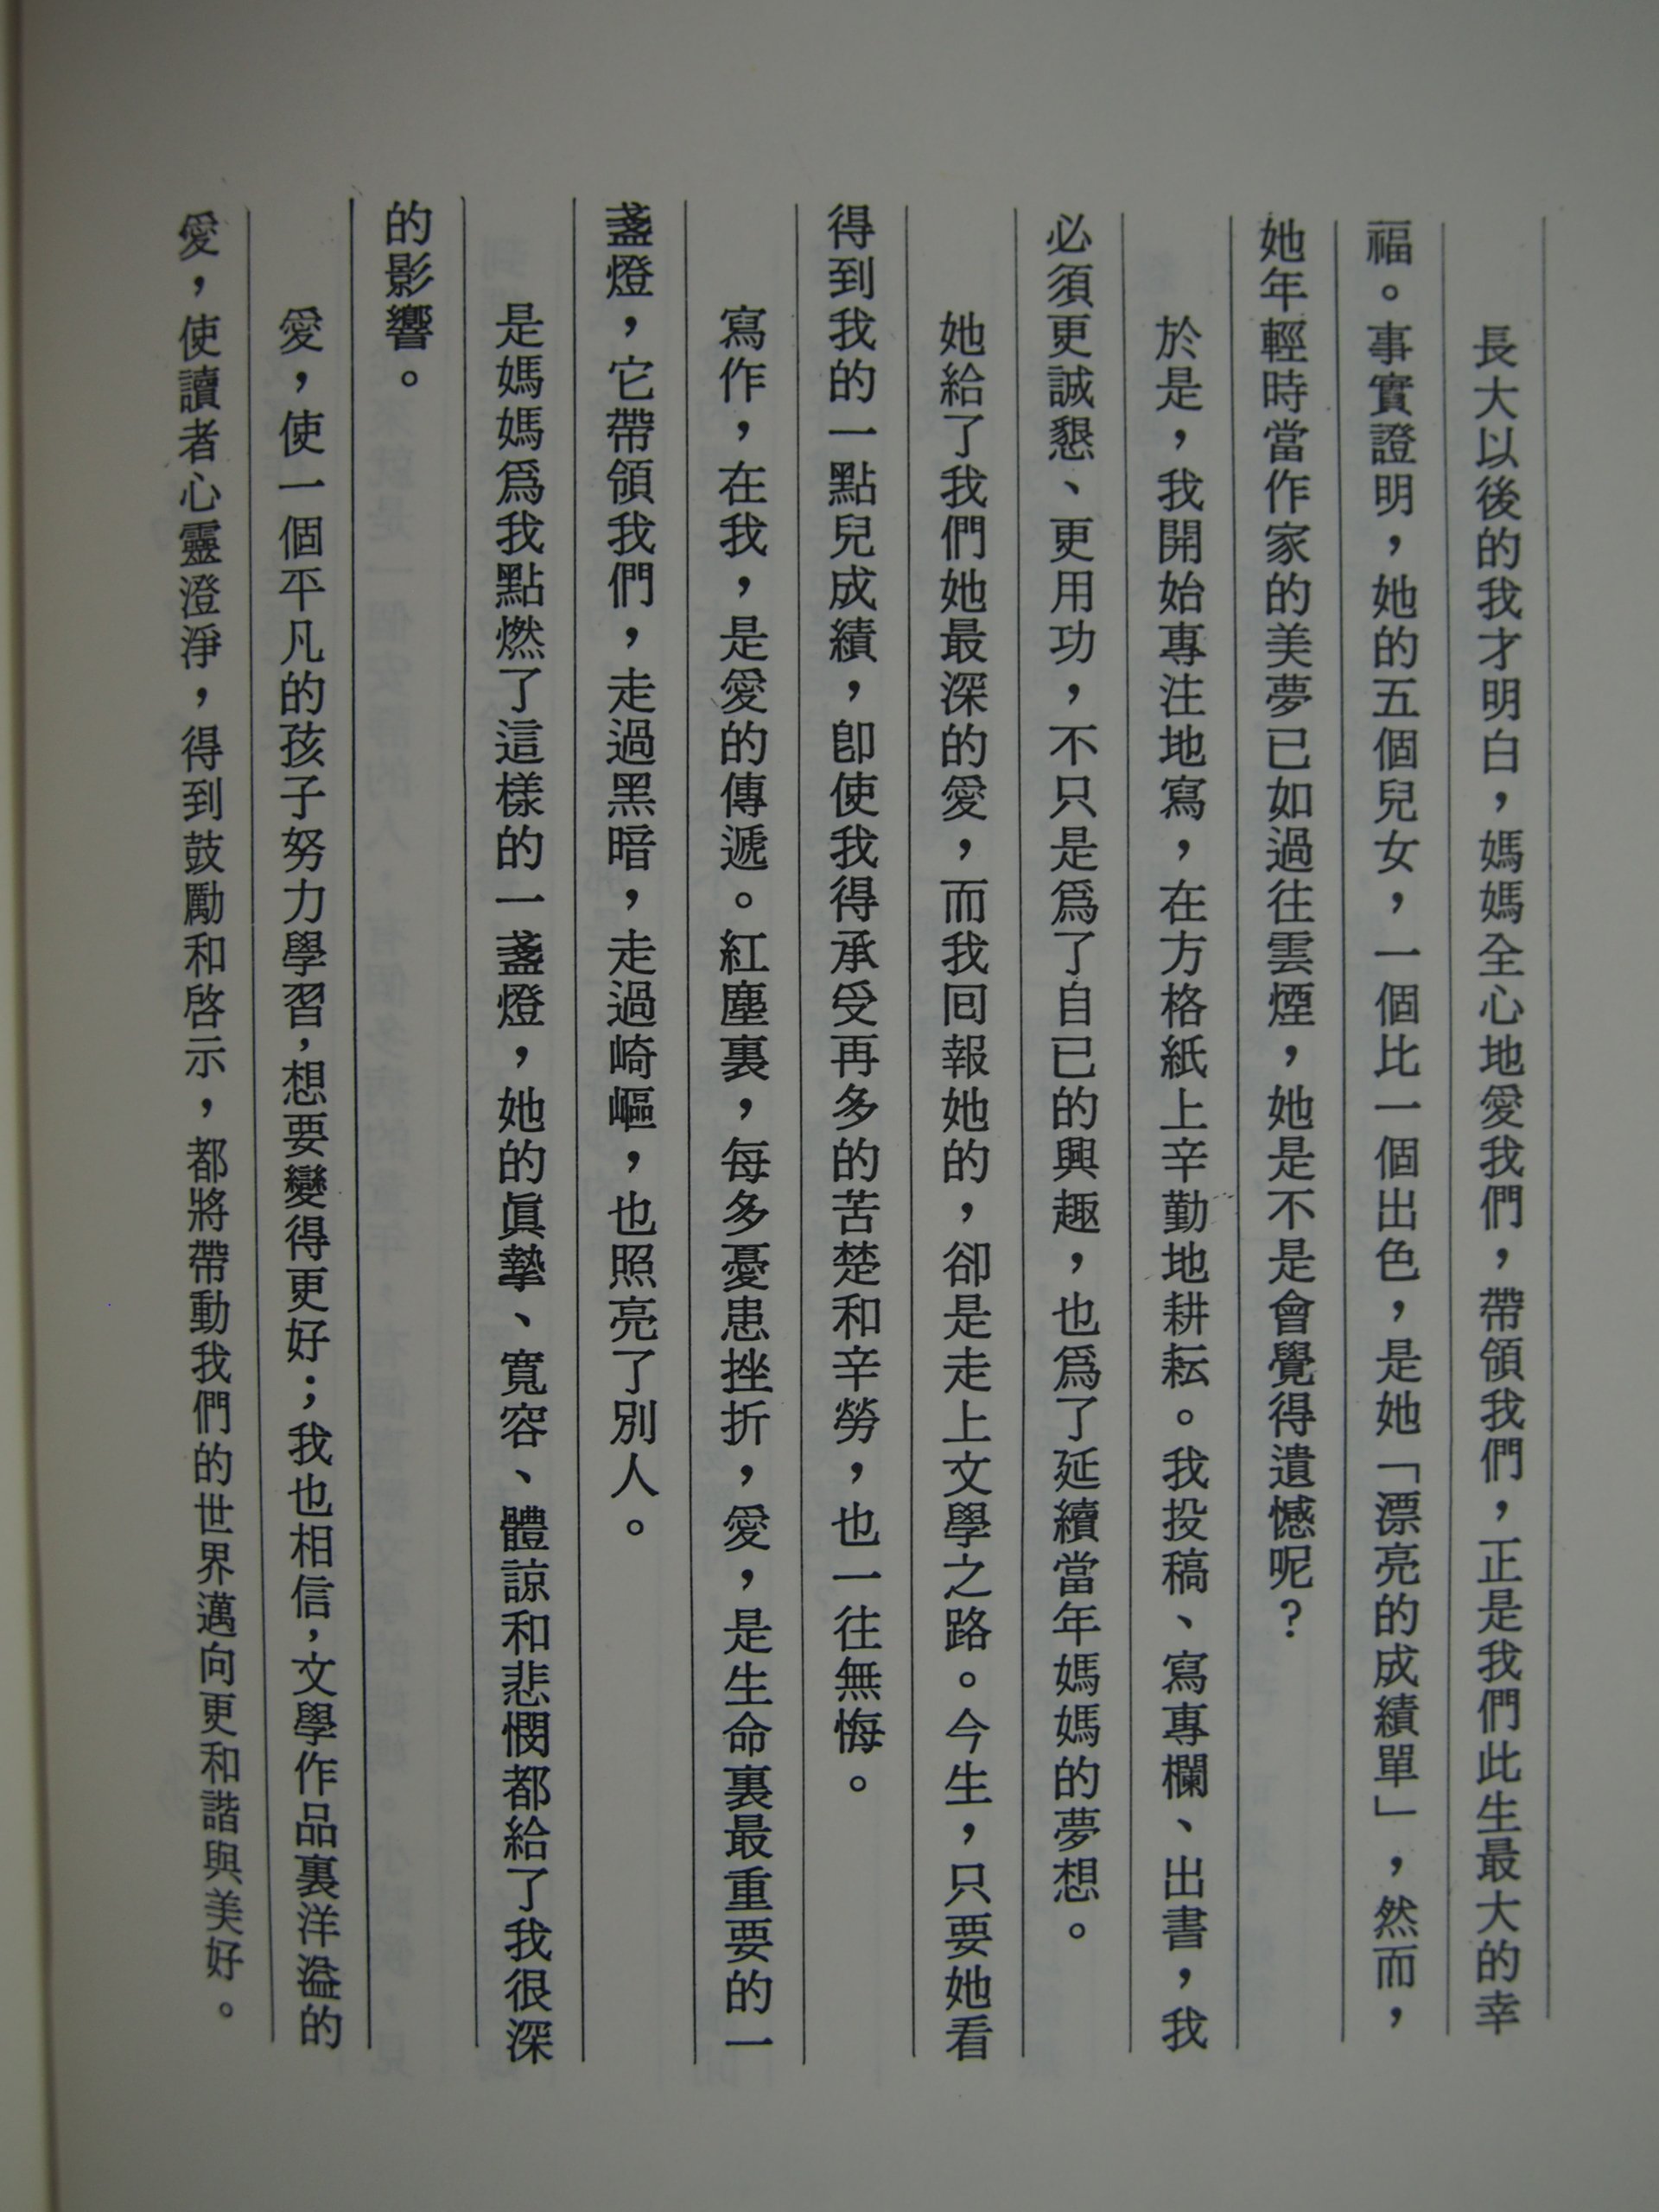 長大以後的我才明白，媽媽全心地愛我們，帶領我們，正是我們此生最大的幸
福。事實證明，她的五個兒女，一個比一個出色，是她「漂亮的成績單」，然而，
她年輕時當作家的美夢已如過往雲煙，她是不是會覺得遺憾呢？
於是，我開始專注地寫，在方格紙上辛勤地耕耘。我投稿、寫專欄、出書，我
必須更誠懇、更用功，不只是爲了自已的興趣，也爲了延續當年媽媽的夢想。
她給了我們她最深的愛，而我回報她的，卻是走上文學之路。今生，只要她看
得到我的一點兒成績，卽使我得承受再多的苦楚和辛勞，也一往無悔。
寫作，在我，是愛的傳遞。紅塵裏，每多憂患挫折，愛，是生命裏最重要的一
盞燈，它帶領我們，走過黑暗，走過崎嶇，也照亮了別人。
是媽媽爲我點燃了這樣的一盞燈，她的眞摯、寬容、體諒和悲憫都給了我很深
的影響。
愛，使一個平凡的孩子努力學習，想要變得更好；我也相信，文學作品裏洋溢的
愛，使讀者心靈澄淨，得到鼓勵和啓示，都將帶動我們的世界邁向更和諧與美好。